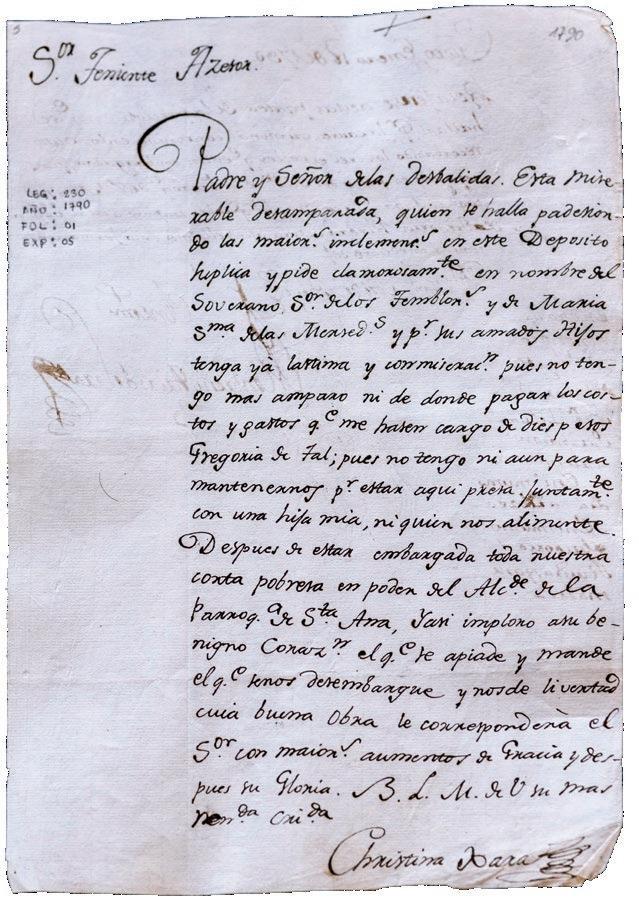 1790
S.or Teniente Azesor.
LEG: 230
AÑO: 1790
FOL: 01
EXP: 05
Padre y Señor delas desbalidas. Esta mise-
rable desamparada, quien se halla padesien-
do las maior.s inclemenc.s en este Deposito
suplica y pide clamorosam.te en nombre del
Soverano S.or delos Temblor.s y de Maria
S.ma delas Mersed.s y p.r sus amados Hijos
tenga yá lastima y conmiserac.n pues no ten-
go mas amparo ni de donde pagar los cos-
tos y gastos q.e me hasen cargo de dies pesos
Gregoria de Tal; pues no tengo ni aun para
mantenernos p.r estar aqui presa juntam.te
con una hija mia, ni quien nos alimente.
Despues de estar embargada toda nuestra
corta pobresa en poder del Alc.de de la
Parroq.a de S.ta Ana, Yasi imploro asu be-
nigno Coraz.n el q.e se apiade y mande
el q.e senos desembargue y nosde livertad
cuia buena Obra le corresponderà el
S.or con maior.s aumentos de Gracia y des-
pues su Gloria. B. L. M. de V su mas
Ren.da Cri.da
Christina Xara